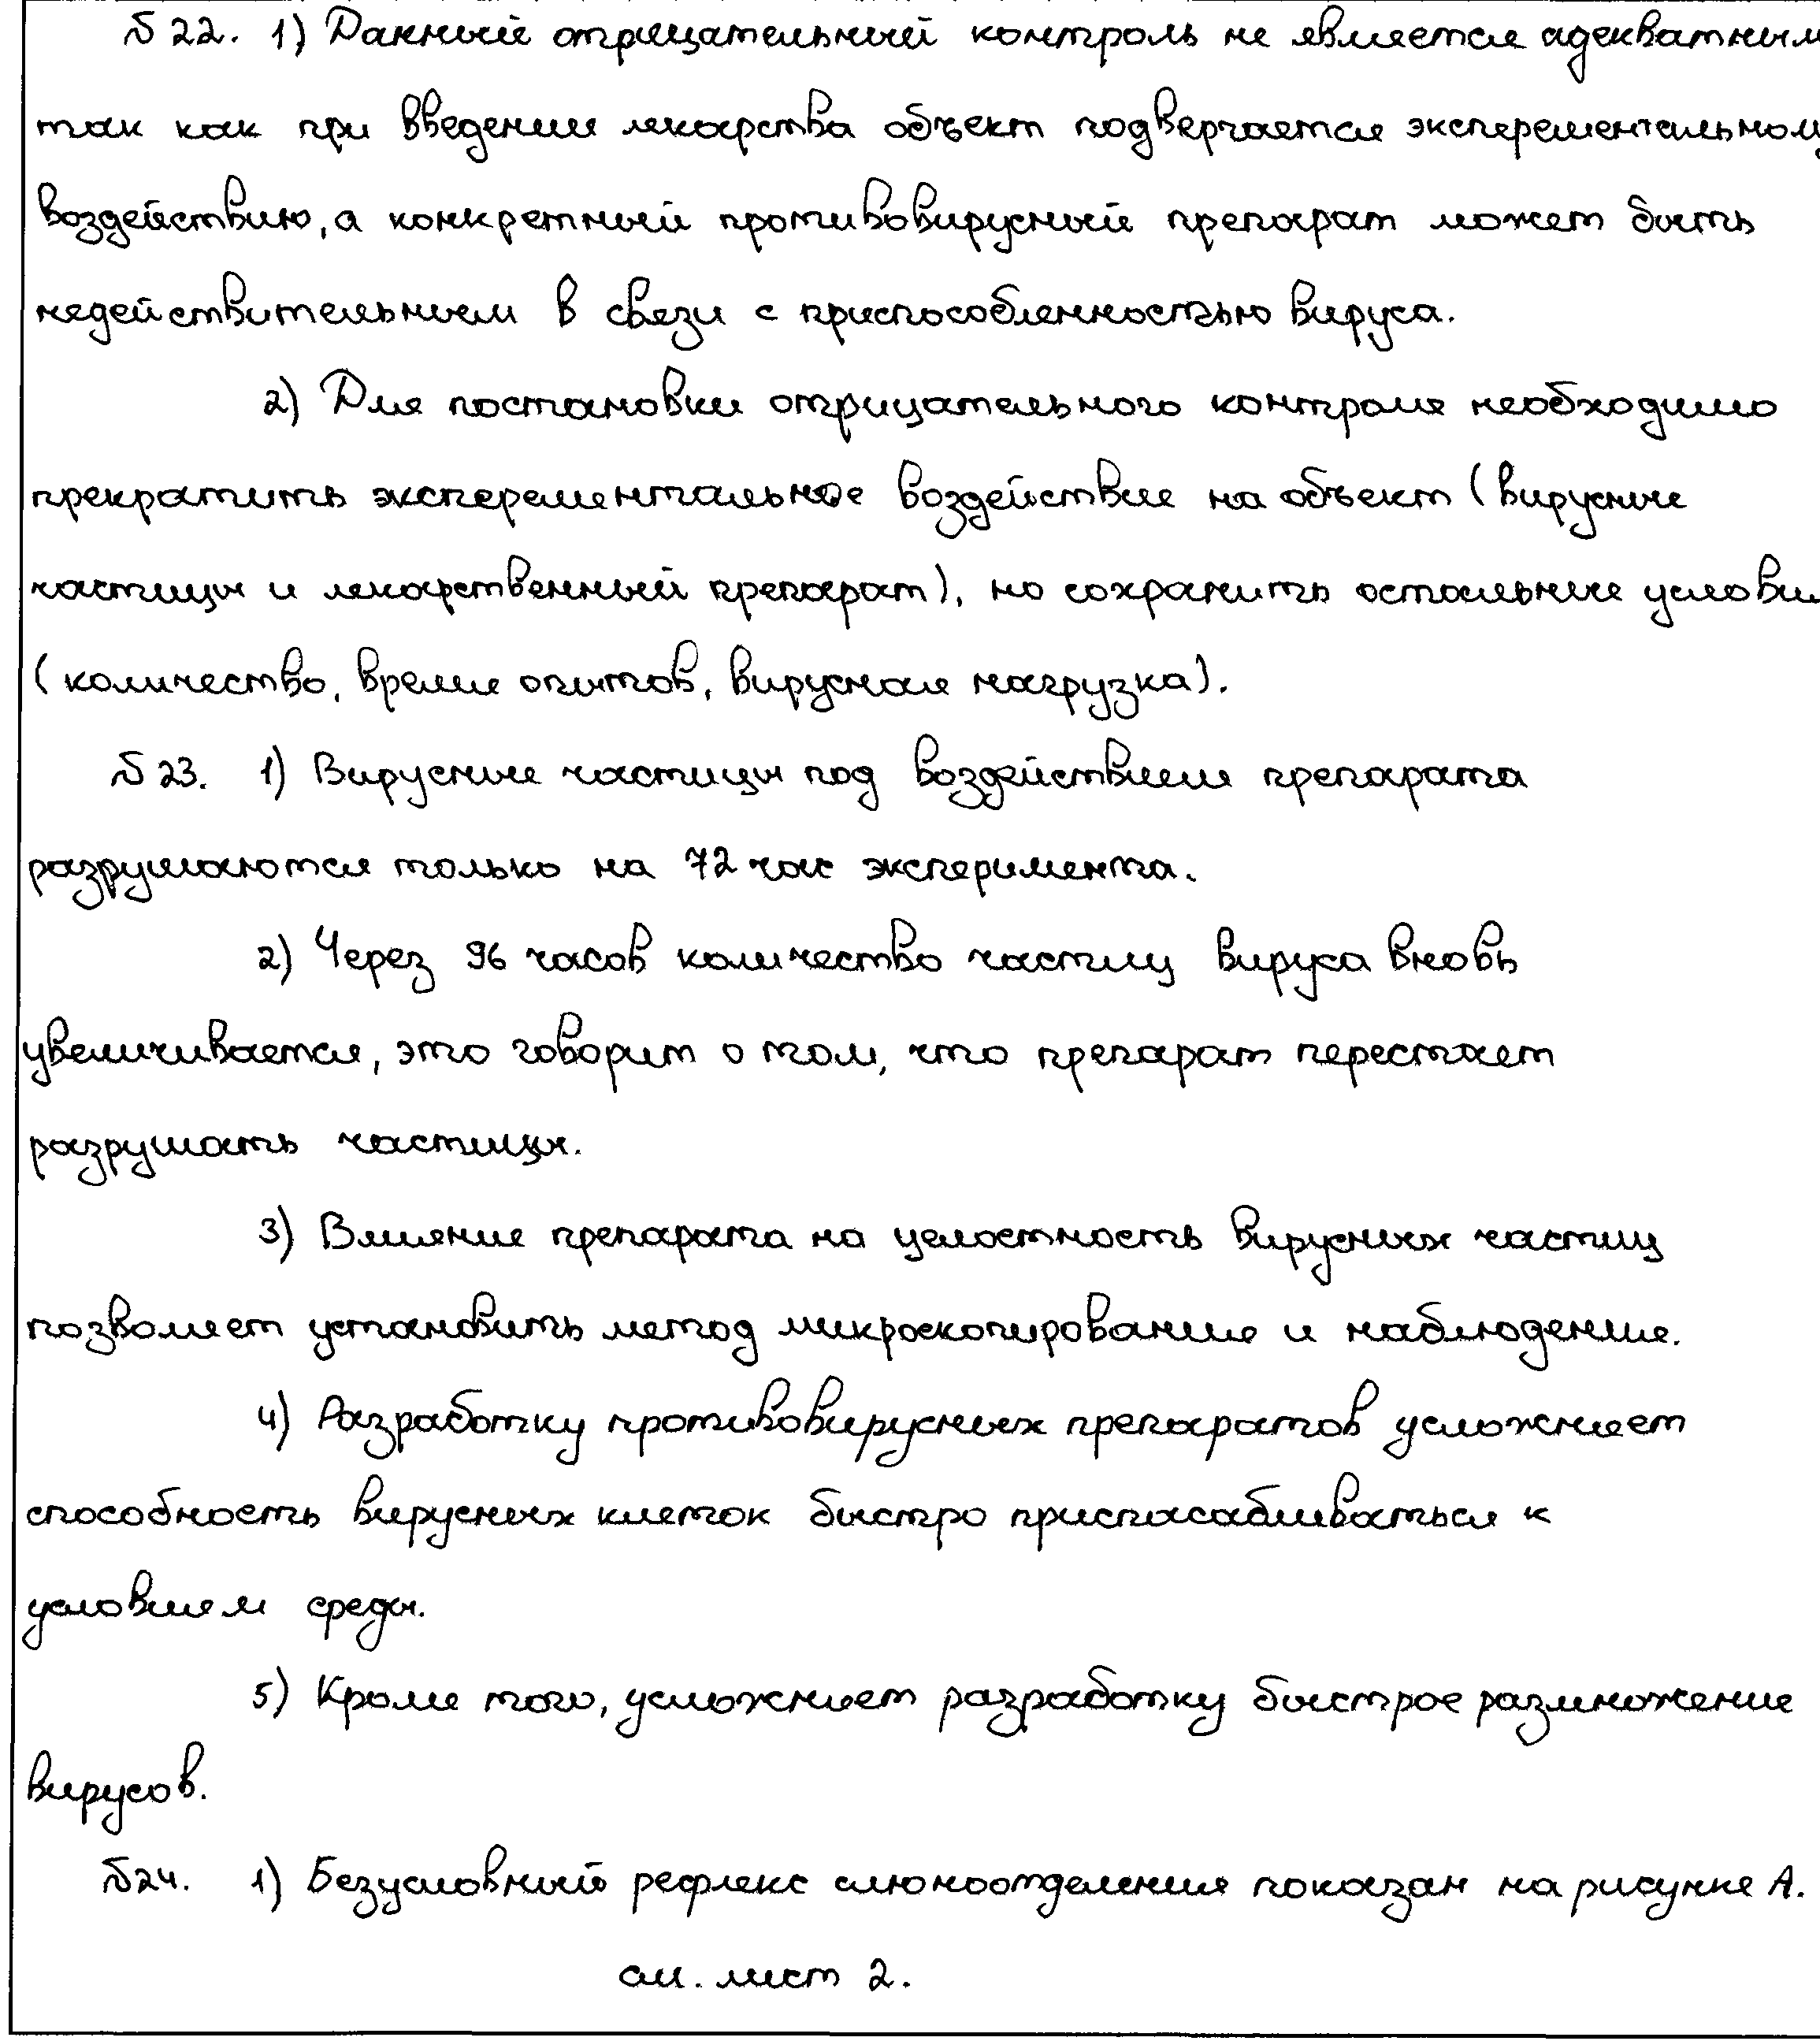 № 22. 1) Данный отрицательный контроль не является адекватным
так как при введении лекарства объект подвергается эксперементальному
воздействию, а конкретный противовирусный препарат может быть
недействительным в связи с приспособленностью вируса.
2) Для постановки отрицательного контроля необходимо
прекратить эксперементальное воздействие на объект (вирусные
частицы и лекарственный препарат), но сохранить остальные услови
(количество, время опытов, вирусная нагрузка).
№ 23. 1) Вирусные частицы под воздействием препарата
разрушаются только на 72 час эксперимента.
2) Через 96 часов количество частиц вируса вновь
увеличивается, это говорит о том, что препарат перестает
разрушать частицы.
3) Влияние препарата на целостность вирусных частиц
позволяет установить метод микроскопирования и наблюдения.
4) Разработку противовирусных препаратов усложняет
способность вирусных клеток быстро приспосабливаться к
условиям среды.
5) Кроме того, усложняет разработку быстрое размножение
вирусов.
№24. 1) Безусловный рефлекс слюноотделения показан на рисунке А.
см. лист 2.